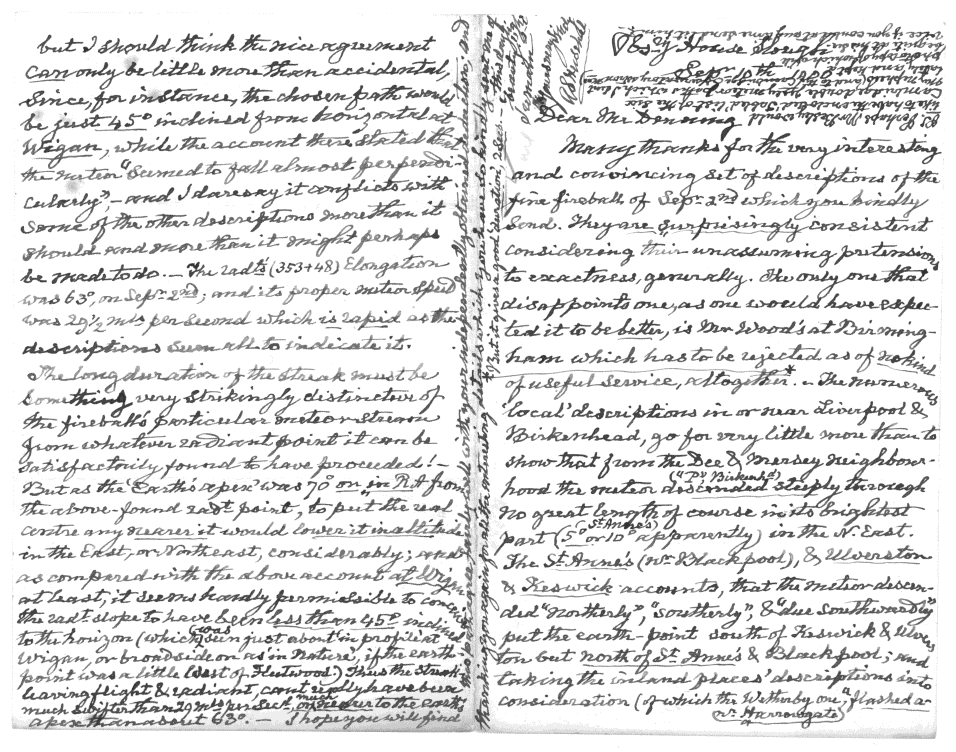 Observatory House Slough
Sepr. 10th
Dear Mr Denning
Many thanks for the very interesting
and convincing set of descriptions of the
fine fireball of Sepr. 2nd which you kindly
send. They are surprisingly consistent
considering their unassuming pretensions
to exactness, generally. The only one that
disappoints one, as one would have expec-
ted it to be better, is Mr Wood's at Birming-
ham which has to be rejected as of no kind
of useful service, altogether*. – The numerous
'local' descriptions in or near Liverpool &
Birkenhead, go for very little more than to
show that from the Dee & Mersey neighbour-
hood the meteor descended steeply through
("D" Birkenhd)
no great length of course in its brightest
part (5° or 10° apparently) in the N. East.
St Anne's
The St. Anne's (nr Blackpool), & Ulverston
& Keswick accounts, that the meteor descen-
ded "Northerly", "Southerly", & "due Southwardly"
put the earth-point south of Keswick & Ulvers
ton but north of St. Anne's & Blackpool; and
taking the inland places' descriptions into
consideration (of which the Wetherby one, "flashed a-
nr Harrowgate)
but I should think the nice agreement
can only be little more than accidental,
since, for instance, the chosen path would
be just 45° inclined from horizontal at
Wigan, while the account there stated that
the meteor "seemed to fall almost perpendi-
cularly", – and I daresay it conflicts with
some of the other descriptions more than it
should and more than it might perhaps
be made to do. – The radt's (353+48) Elongation
was 63°, on Sepr. 2nd; and its proper meteor speed
was 29½ mls per second which is rapid as the
descriptions seem all to indicate it.
The long duration of the streak must be
something very strikingly distinctive of
the fireball's particular meteor stream
from whatever radiant point it can be
satisfactorily found to have proceeded! –
But as the Earth's apex was 70° on in R.A from
the above-found radt point, to put the real
centre any nearer it would lower it in altitude
in the East, or Northeast, considerably; and
as compared with the above account at Wigan
at least, it seems hardly permissible to conceive
the radt slope to have been less than 45° inclined
to the horizon (which was seen just about in profile at
Wigan, or broadside on as in Nature, if the earth-
point was a little West of Fleetwood.) Thus the streak-
leaving flight & radiant, can't really have been
much swifter than 29 mls per sec., or much nearer to the earth's
apex than about 63°. – I hope you will find
* but it gives a good duration, 2 secs. –